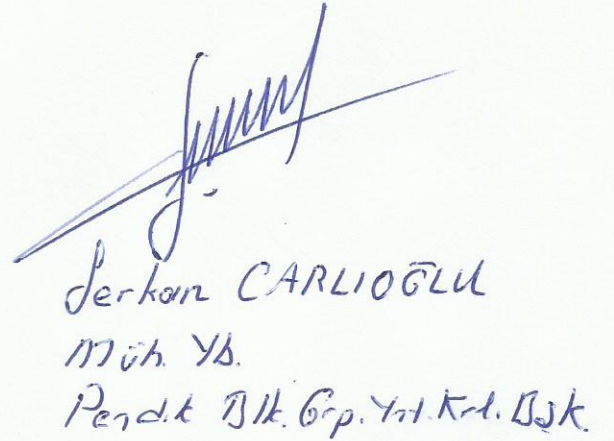 Serkan CARLIOĞLU
Müh. Yb.
Pendik Blk. Grp. Ynt. Krl. Bşk.